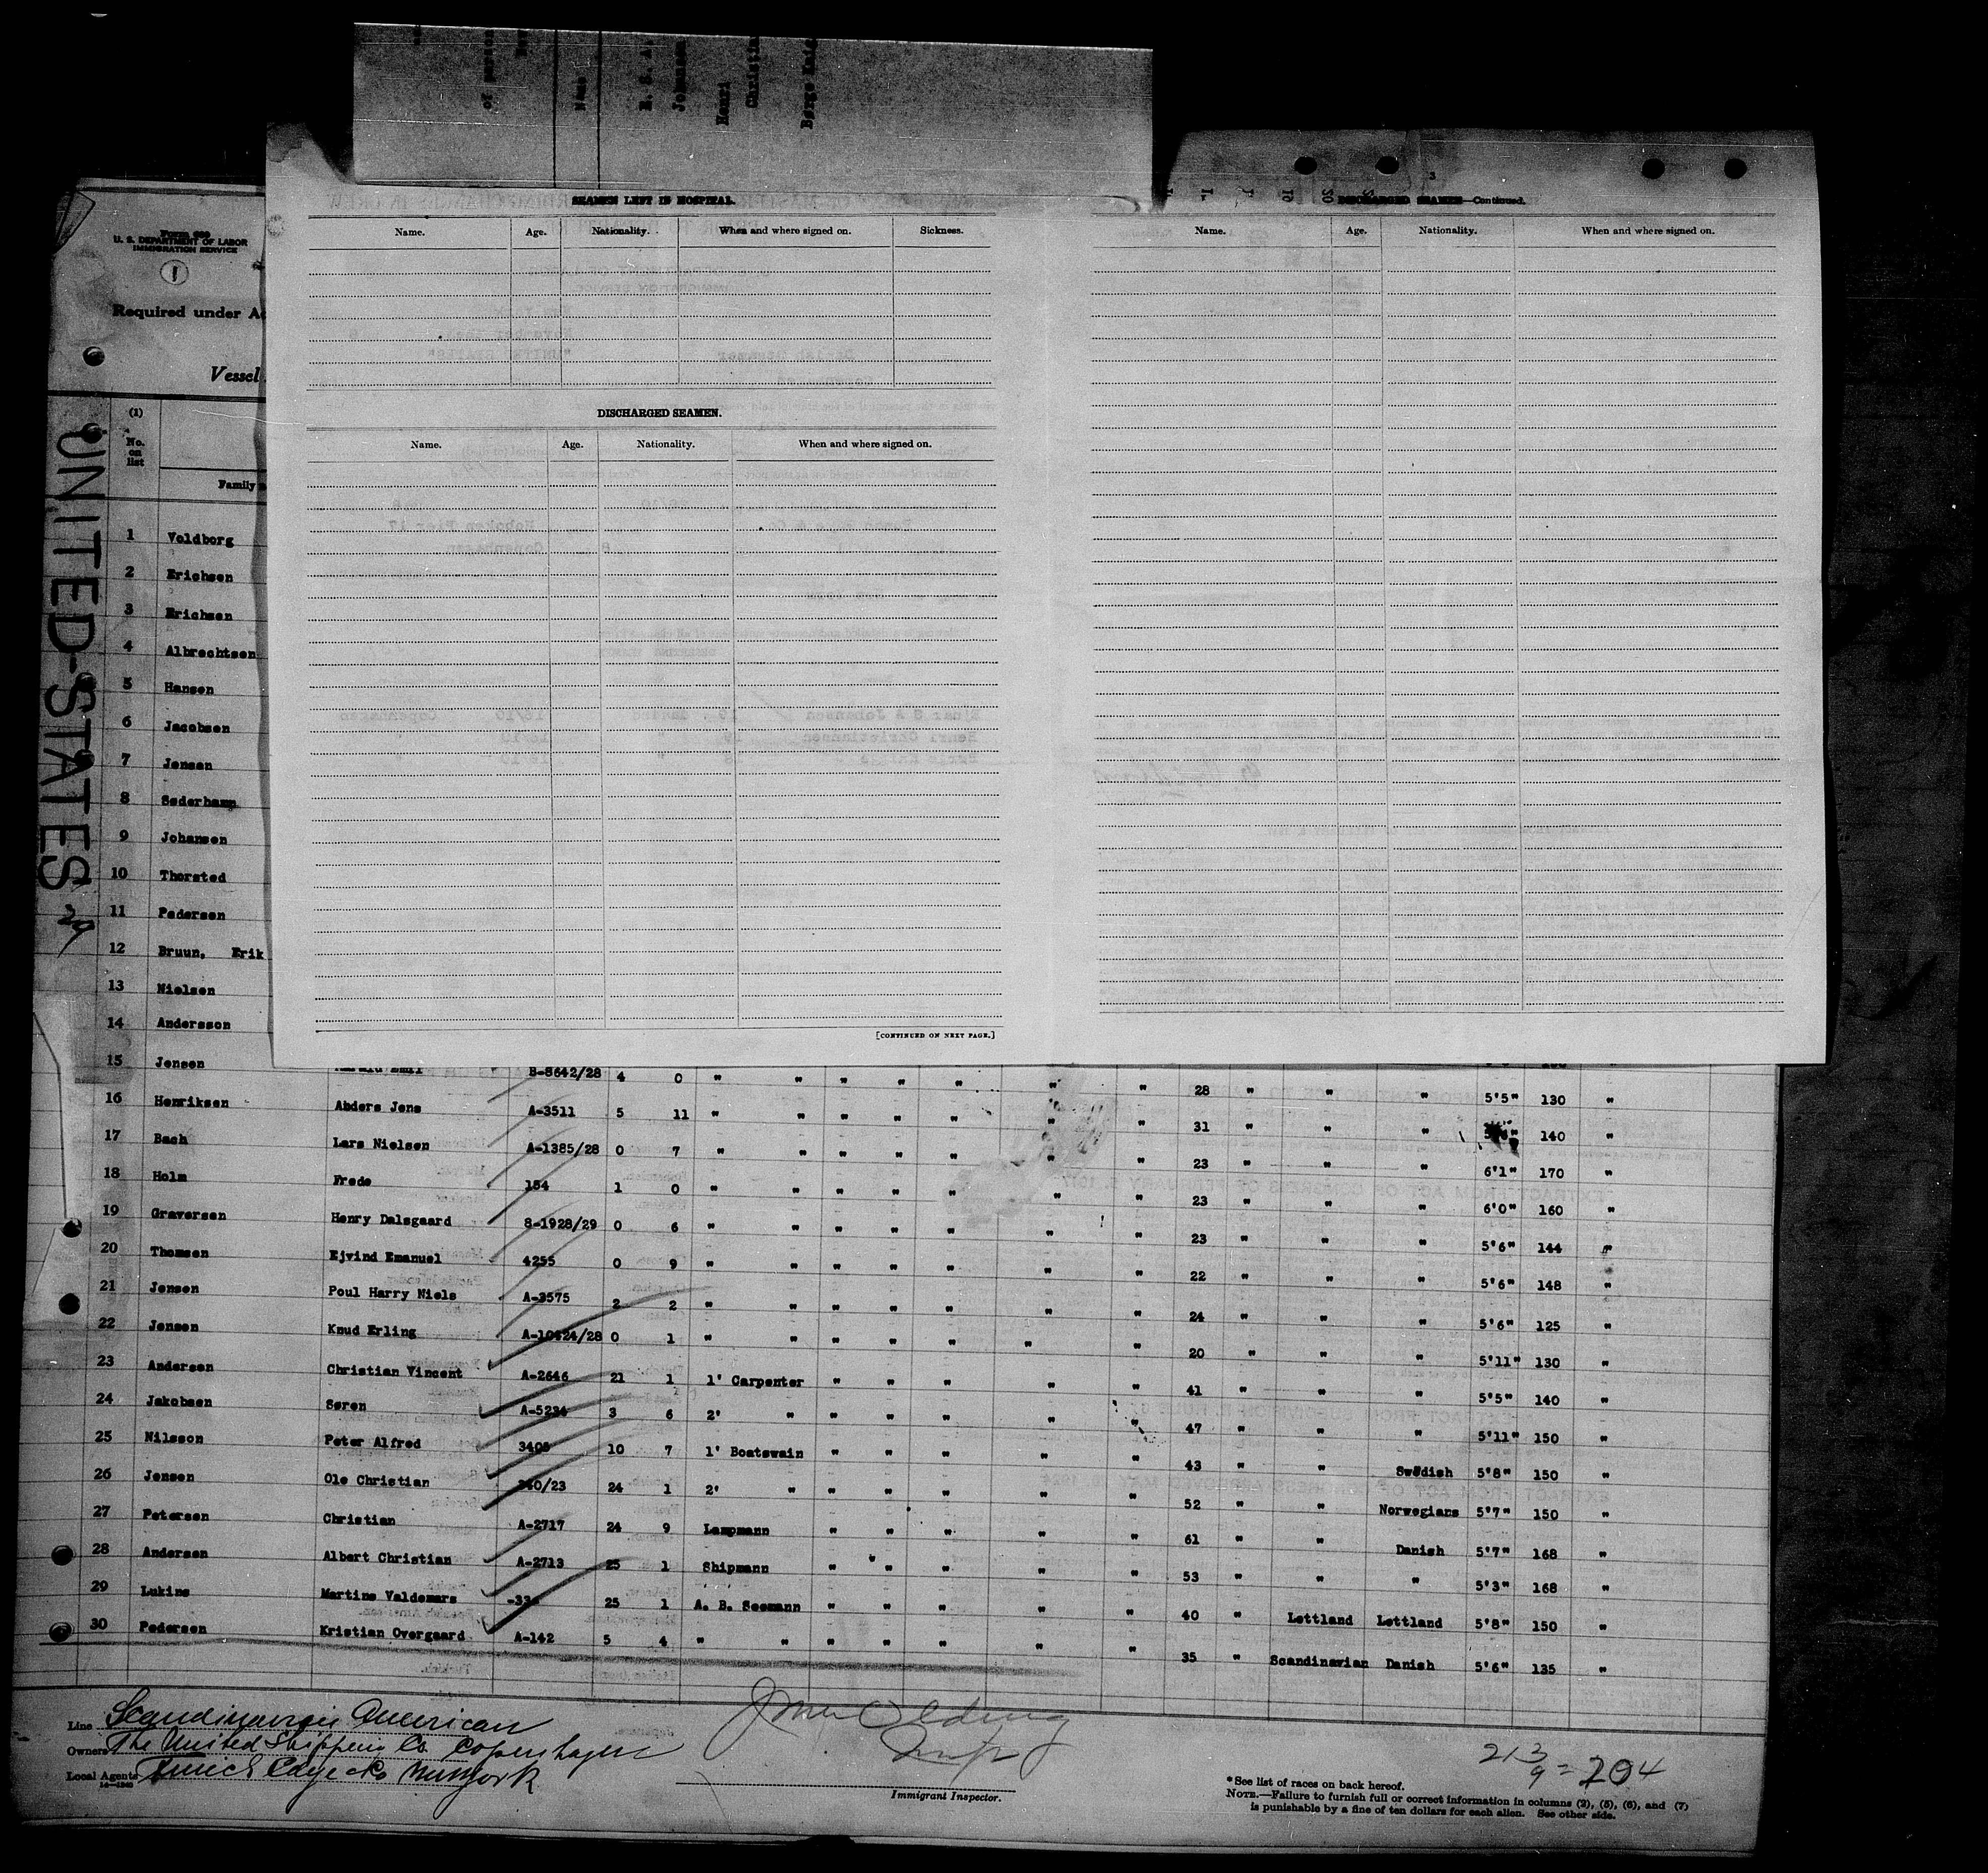 of person
Name
E. S. A.
Johansen
Henri
Christian
Børge Kaig
SEAMEN LEFT IN HOSPITAL.
Name. Age. Nationality. When and where signed on. Sickness.
DISCHARGED SEAMEN.
Name. Age. Nationality. When and where signed on.
[CONTINUED ON NEXT PAGE.]
3
DISCHARGED SEAMEN—Continued.
Name. Age. Nationality. When and where signed on.
Form 689
U. S. DEPARTMENT OF LABOR
IMMIGRATION SERVICE
1
Required under Ac
Vessel
UNITED-STATES
29
(1)
No. on list
Family
1 Voldborg
2 Erichsen
3 Erichsen
4 Albrechtsen
5 Hansen
6 Jacobsen
7 Jensen
8 Søderhamp
9 Johansen
10 Thorsted
11 Pedersen
12 Bruun, Erik
13 Nielsen
14 Andersson
15 Jensen Emil B-8642/28 4 0 " " " " " " " 28 " " " 5'5" 130 "
16 Henriksen Ahders Jens A-3511 5 11 " " " " " " " 31 " " " 140 "
17 Bach Lars Nielsen A-1385/28 0 7 " " " " " " " 23 " " " 6'1" 170 "
18 Holm Frede 154 1 0 " " " " " " " 23 " " " 6'0" 160 "
19 Graversen Henry Dalsgaard 8-1928/29 0 6 " " " " " " " 23 " " " 5'6" 144 "
20 Thomsen Ejvind Emanuel 4255 0 9 " " " " " " " 22 " " " 5'6" 148 "
21 Jensen Poul Harry Niels A-3575 2 2 " " " " " " " 24 " " " 5'6" 125 "
22 Jensen Knud Erling A-10424/28 0 1 " " " " " " " 20 " " " 5'11" 130 "
23 Andersen Christian Vincent A-2646 21 1 1' Carpenter " " " " " 41 " " " 5'5" 140 "
24 Jakobsen Søren A-5234 3 6 2' " " " " " " 47 " " " 5'11" 150 "
25 Nilsson Peter Alfred 3405 10 7 1' Boatswain " " " " " 43 " " Swedish 5'8" 150 "
26 Jensen Ole Christian 340/23 24 1 2' " " " " " " 52 " " Norwegians 5'7" 150 "
27 Petersen Christian A-2717 24 9 Lampmann " " " " " 61 " " Danish 5'7" 168 "
28 Andersen Albert Christian A-2713 25 1 Shipmann " " " " " 53 " " " 5'3" 168 "
29 Lukins Martins Valdemars 25 1 A. B. Seemann " " " " " 40 " Lettland Lettland 5'8" 150 "
30 Pedersen Kristian Overgaard A-142 5 4 " " " " " " " 35 " Scandinavian Danish 5'6" 135 "
Line Scandinavian American
Owners The United Shipping Co. Copenhagen
Local Agents Funch Edye & Co New York
14—1240
Immigrant Inspector.
213
9 = 204
*See list of races on back hereof.
NOTE.—Failure to furnish full or correct information in columns (2), (5), (6), and (7)
is punishable by a fine of ten dollars for each alien. See other side.